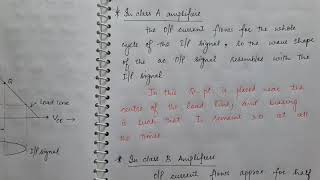 * In class A amplifiers
the O/P current flows for the whole
cycle of the I/P signal, so the wave shape
of the ac O/P signal resembles with the
I/P signal
In this Q-pt. is placed near the
centre of the load line, and biasing
is such that it remains so at all
the times.
* In class B Amplifiers
O/P current flows approx for half
Q
Load line
VCE
I/P signal